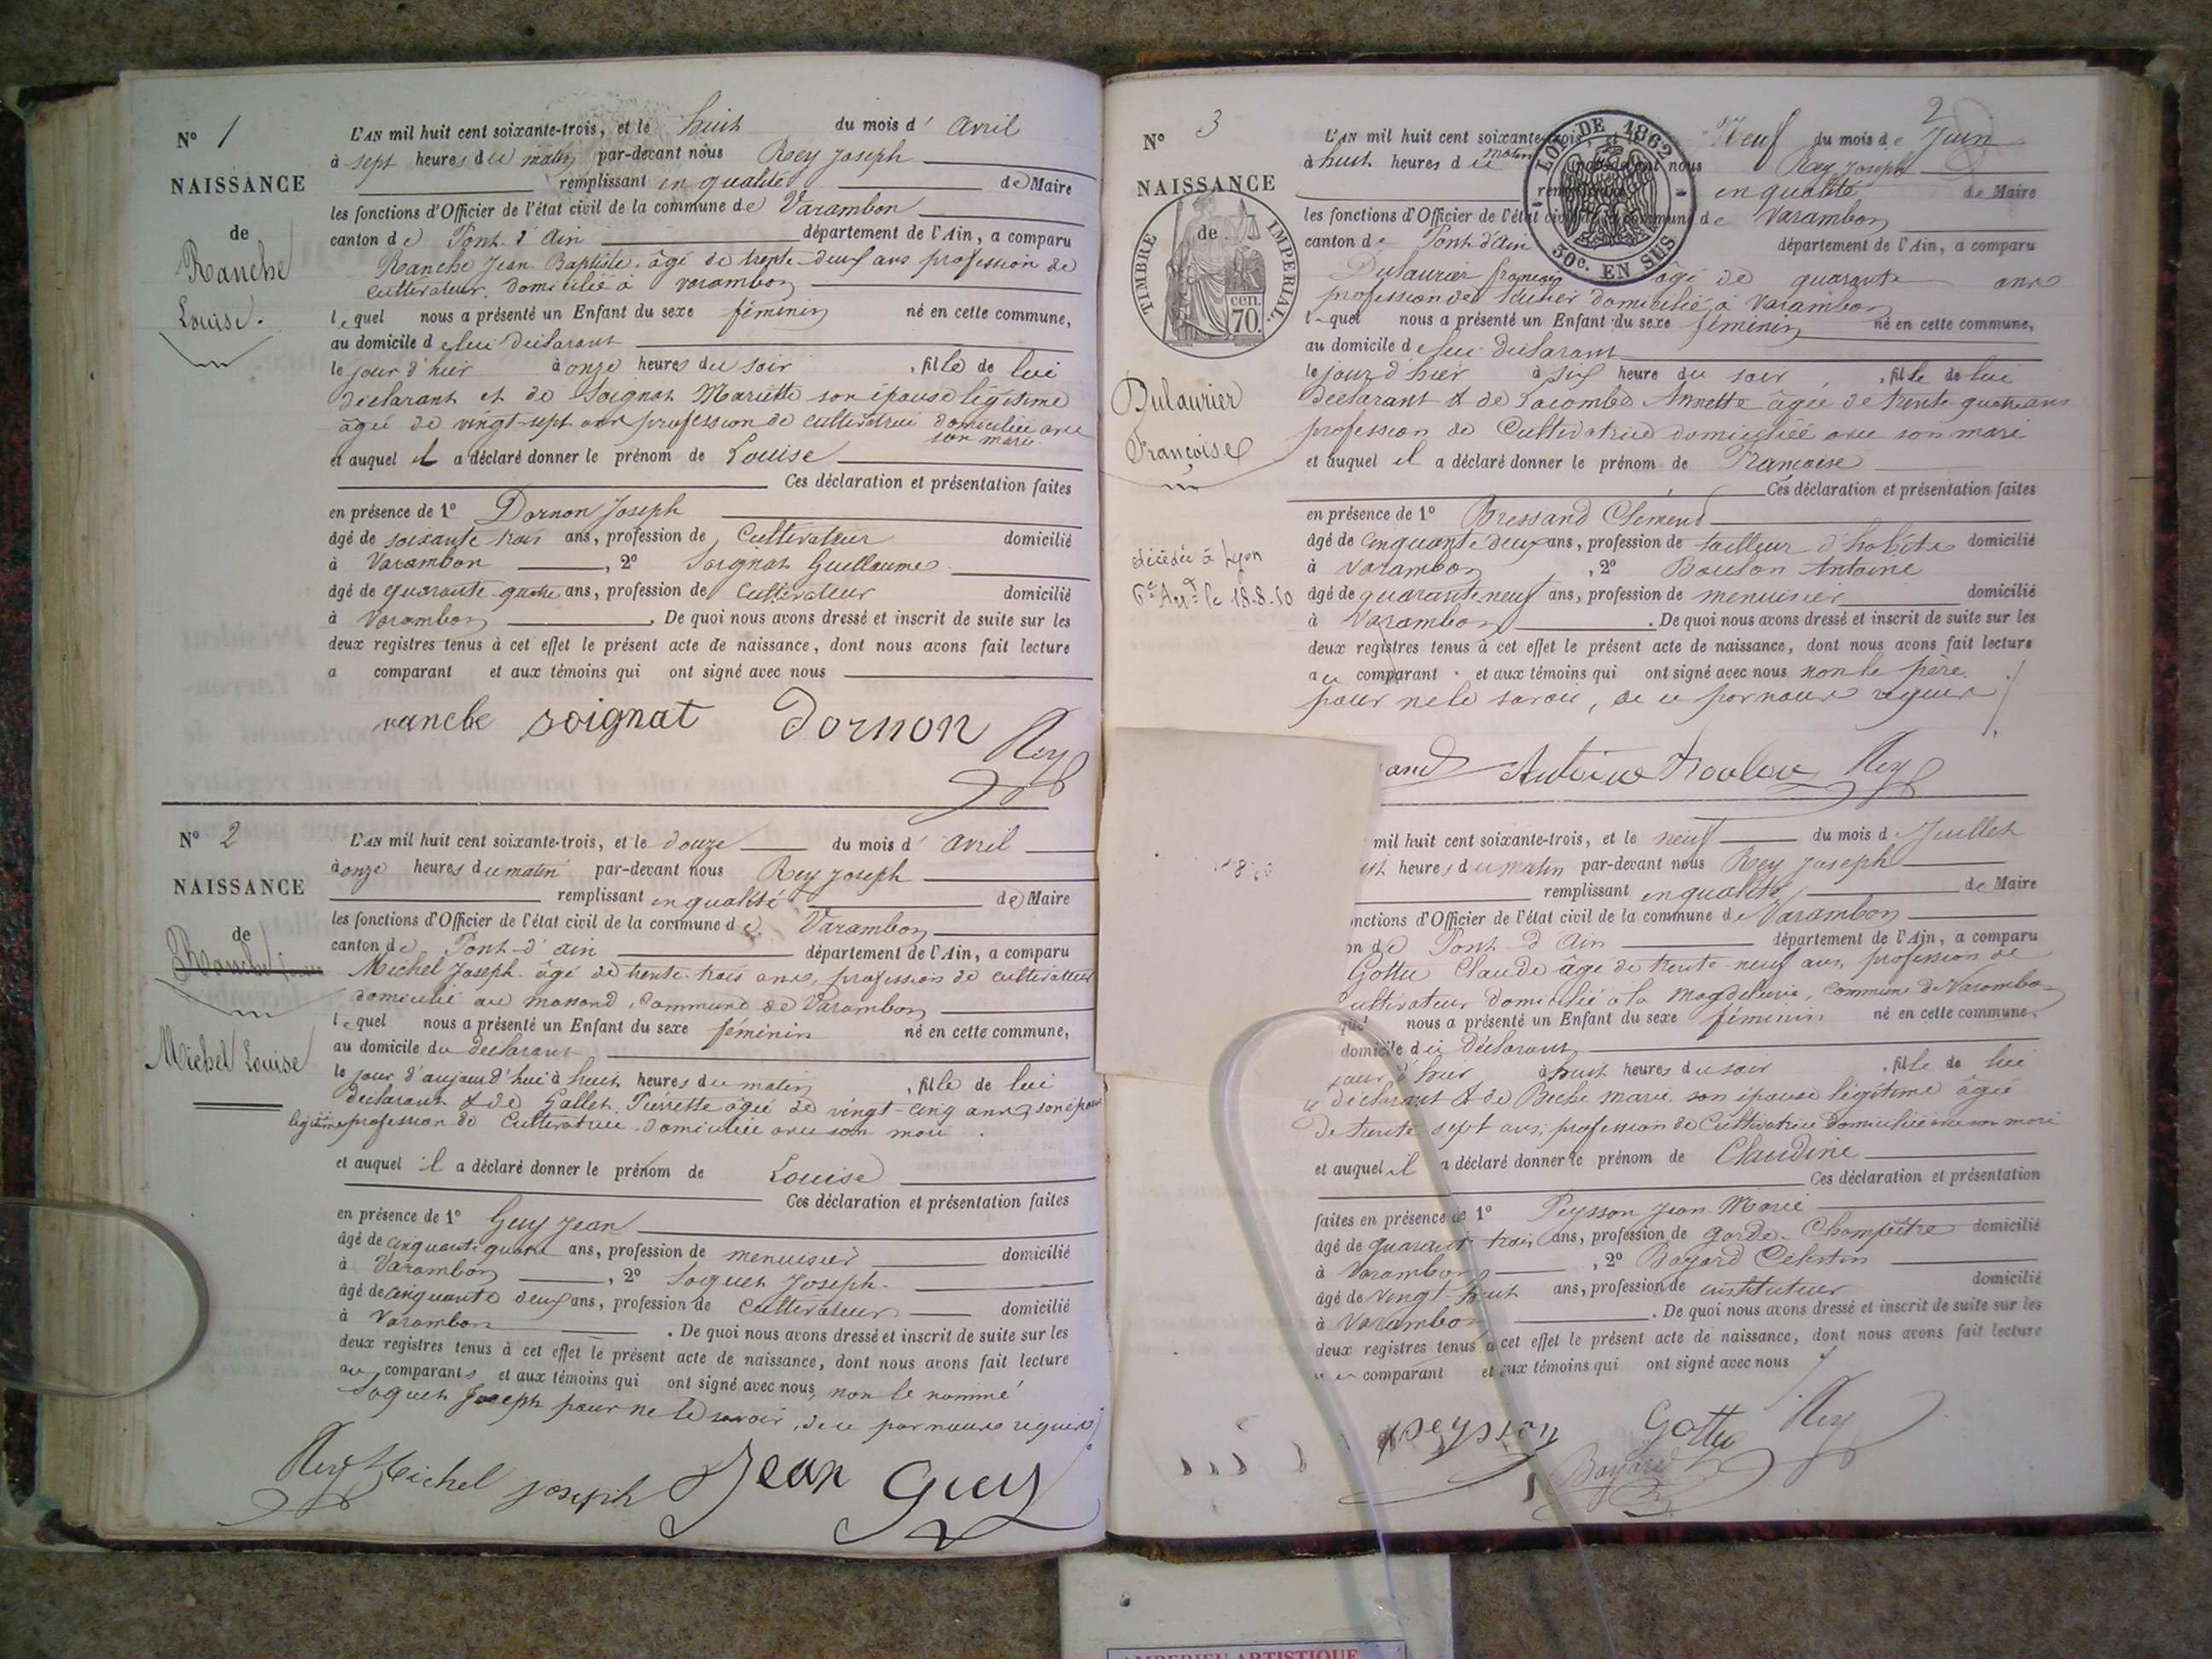 N° 1
NAISSANCE
de
Ranche
Louise.
L'AN mil huit cent soixante-trois, et le huit du mois d' Avril
à sept heures du matin par-devant nous Rey Joseph
remplissant en qualité de Maire
les fonctions d'Officier de l'état civil de la commune de Varambon
canton de Pont d'Ain département de l'Ain, a comparu
Ranche Jean Baptiste. âgé de trente-deux ans profession de
cultivateur. domicilié à varambon
lequel nous a présenté un Enfant du sexe féminin né en cette commune,
au domicile de lui déclarant
le jour d'hier à onze heures du soir, fille de lui
déclarant et de Soignat Mariette son épouse légitime
âgée de vingt-sept ans profession de cultivatrice domiciliée avec
son mari.
et auquel il a déclaré donner le prénom de Louise
Ces déclaration et présentation faites
en présence de 1° Dornon Joseph
âgé de soixante trois ans, profession de Cultivateur domicilié
à Varambon, 2° Soignat Guillaume
âgé de quarante-quatre ans, profession de Cultivateur domicilié
à Varambon. De quoi nous avons dressé et inscrit de suite sur les
deux registres tenus à cet effet le présent acte de naissance, dont nous avons fait lecture
a comparant et aux témoins qui ont signé avec nous
ranche soignat Dornon Rey
N° 2
NAISSANCE
de
Ranche Louise
Michel Louise
L'AN mil huit cent soixante-trois, et le douze du mois d' Avril
à onze heures du matin par-devant nous Rey Joseph
remplissant en qualité de Maire
les fonctions d'Officier de l'état civil de la commune de Varambon
canton de Pont-d'ain département de l'Ain, a comparu
Michel Joseph. âgé de trente-trois ans, profession de cultivateur
domicilié au , Commune de Varambon
lequel nous a présenté un Enfant du sexe féminin né en cette commune,
au domicile du déclarant
le jour d'aujourd'hui à huit heures du matin, fille de lui
déclarant & de Gallet Pierrette âgée de vingt-cinq ans, son épouse
légitime profession de Cultivatrice domiciliée avec son mari.
et auquel il a déclaré donner le prénom de Louise
Ces déclaration et présentation faites
en présence de 1° Guy Jean
âgé de cinquante quatre ans, profession de menuisier domicilié
à Varambon, 2° Joseph.
âgé de cinquante deux ans, profession de Cultivateur domicilié
à Varambon. De quoi nous avons dressé et inscrit de suite sur les
deux registres tenus à cet effet le présent acte de naissance, dont nous avons fait lecture
au comparants et aux témoins qui ont signé avec nous, non le nommé
Joseph pour ne le savoir, de ce par nous requis
Rey Michel joseph Jean Guy
2
N° 3
NAISSANCE
de
TIMBRE IMPERIAL.
cen.
70.
LOI DE 1862
50c. EN SUS
Dulaurier
Françoise
décédée à Lyon
6e Arrt le 18.8.50
L'AN mil huit cent soixante-trois, et le Neuf du mois de Juin
à huit heures du matin par-devant nous Rey Joseph
remplissant en qualité de Maire
les fonctions d'Officier de l'état civil de la commune de Varambon
canton de Pont d'Ain département de l'Ain, a comparu
Dulaurier françois âgé de quarante ans
profession de domicilié à Varambon
lequel nous a présenté un Enfant du sexe féminin né en cette commune,
au domicile de lui déclarant
le jour d'hier à six heure du soir, fille de lui
déclarant & de Lacombe Annette âgée de trente quatre ans
profession de Cultivatrice domiciliée avec son mari
et auquel il a déclaré donner le prénom de Françoise
Ces déclaration et présentation faites
en présence de 1° Bressand Clément
âgé de cinquante deux ans, profession de tailleur d'habits domicilié
à Varambon, 2° Antoine
âgé de quarante neuf ans, profession de menuisier domicilié
à Varambon. De quoi nous avons dressé et inscrit de suite sur les
deux registres tenus à cet effet le présent acte de naissance, dont nous avons fait lecture
au comparant et aux témoins qui ont signé avec nous non le père
pour ne le savoir, de ce par nous requis
and Antoine Rey
mil huit cent soixante-trois, et le neuf du mois d Juillet
heures du matin par-devant nous Rey Joseph
remplissant en qualité de Maire
onctions d'Officier de l'état civil de la commune de Varambon
on de Pont-d'Ain département de l'Ain, a comparu
Gottu Claude âgé de trente-neuf ans, profession de
Cultivateur domicilié à la , Commune de Varambon
quel nous a présenté un Enfant du sexe féminin né en cette commune.
domicile du déclarant
jour d'hier à huit heures du soir, fille de lui
déclarant & de Biche marie son épouse légitime âgée
de trente sept ans, profession de Cultivatrice domiciliée avec son mari
et auquel il a déclaré donner le prénom de Claudine
Ces déclaration et présentation
faites en présence de 1° Peysson Jean-Marie
âgé de quarante trois ans, profession de garde-Champêtre domicilié
à Varambon, 2° Bayard Célestin
âgé de vingt-huit ans, profession de instituteur domicilié
à Varambon. De quoi nous avons dressé et inscrit de suite sur les
deux registres tenus à cet effet le présent acte de naissance, dont nous avons fait lecture
comparant et aux témoins qui ont signé avec nous
peysson Gottu Rey
Bayard
AMBERIEU ARTISTIQUE